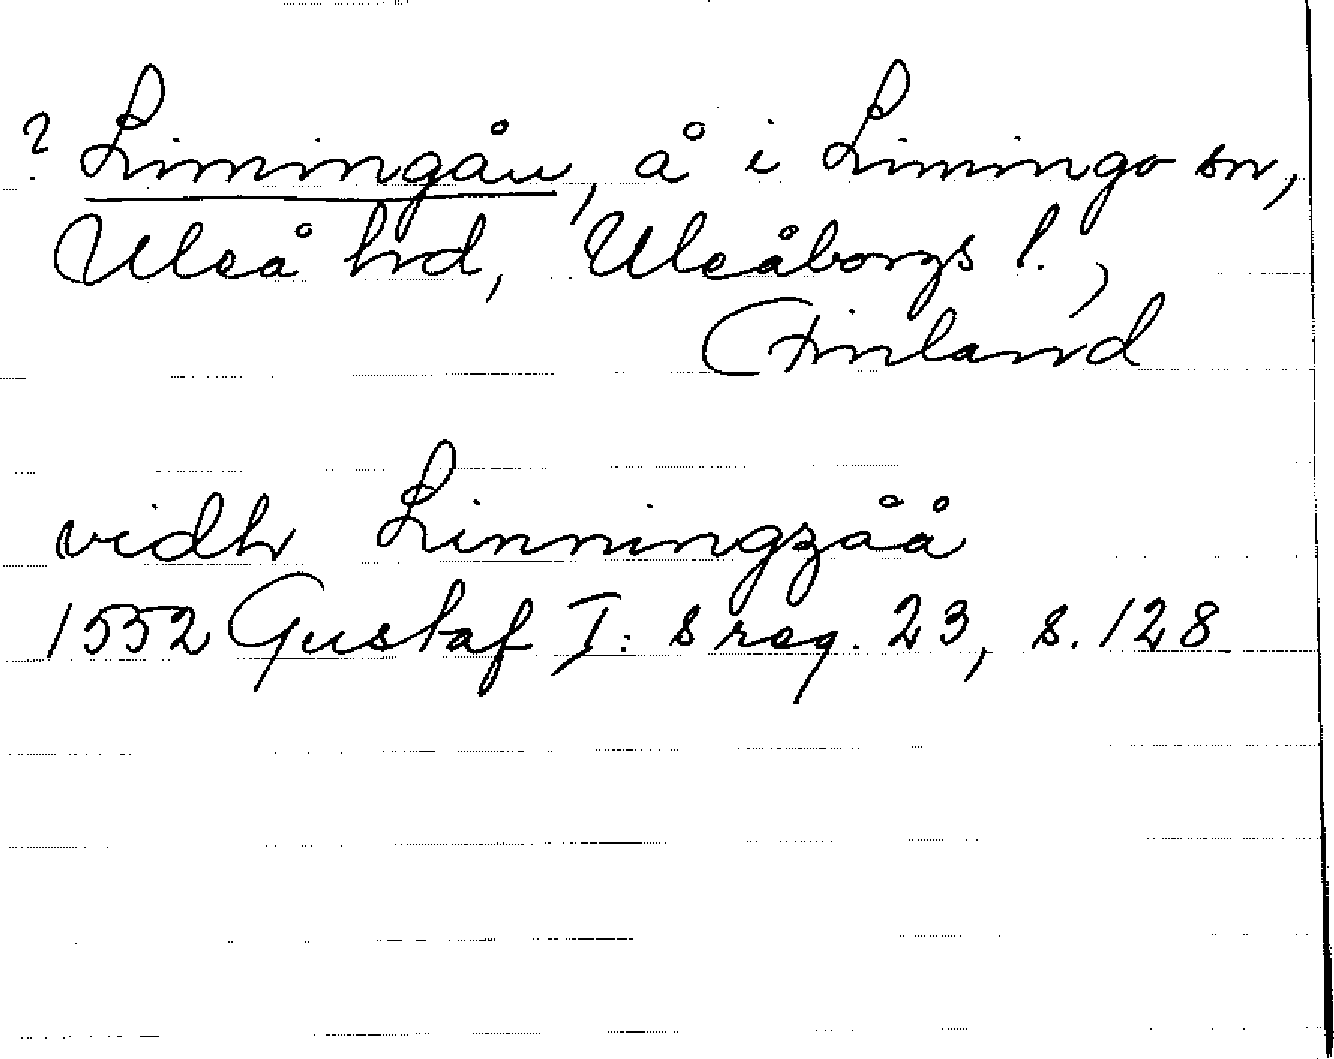 ? Limingån, å i Limingo sn,
Uleå hrd, Uleåborgs l.,
Finland
vidh Linningzåå
1552 Gustaf I:s reg. 23, s. 128